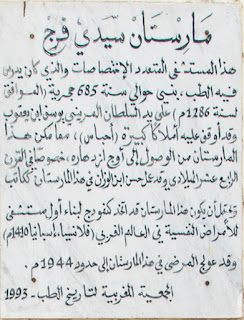 مارستان سيدي فرج
هذا المستشفى المتعدد الإختصاصات والذي كان يدرس
فيه الطب، بني حوالي سنة 685 هجرية (الموافق
لسنة 1286م) على يد السلطان المريني يوسف ابن يعقوب
وقد أوقف عليه أملاكا كثيرة (أحباس)، مما مكن هذا
المارستان من الوصول إلى أوج ازدهاره، خصوصا في القرن
الرابع عشر الميلادي وقد عمل حسن ابن الوزان في هذا المارستان ككاتب
ويحتمل أن يكون هذا المارستان قد اتخذ كنموذج لبناء أول مستشفى
للأمراض النفسية في العالم الغربي (فلانسيا، إسبانيا 1410م)
وقد عولج المرضى في هذا المارستان إلى حدود 1944م.
الجمعية المغربية لتاريخ الطب - 1993